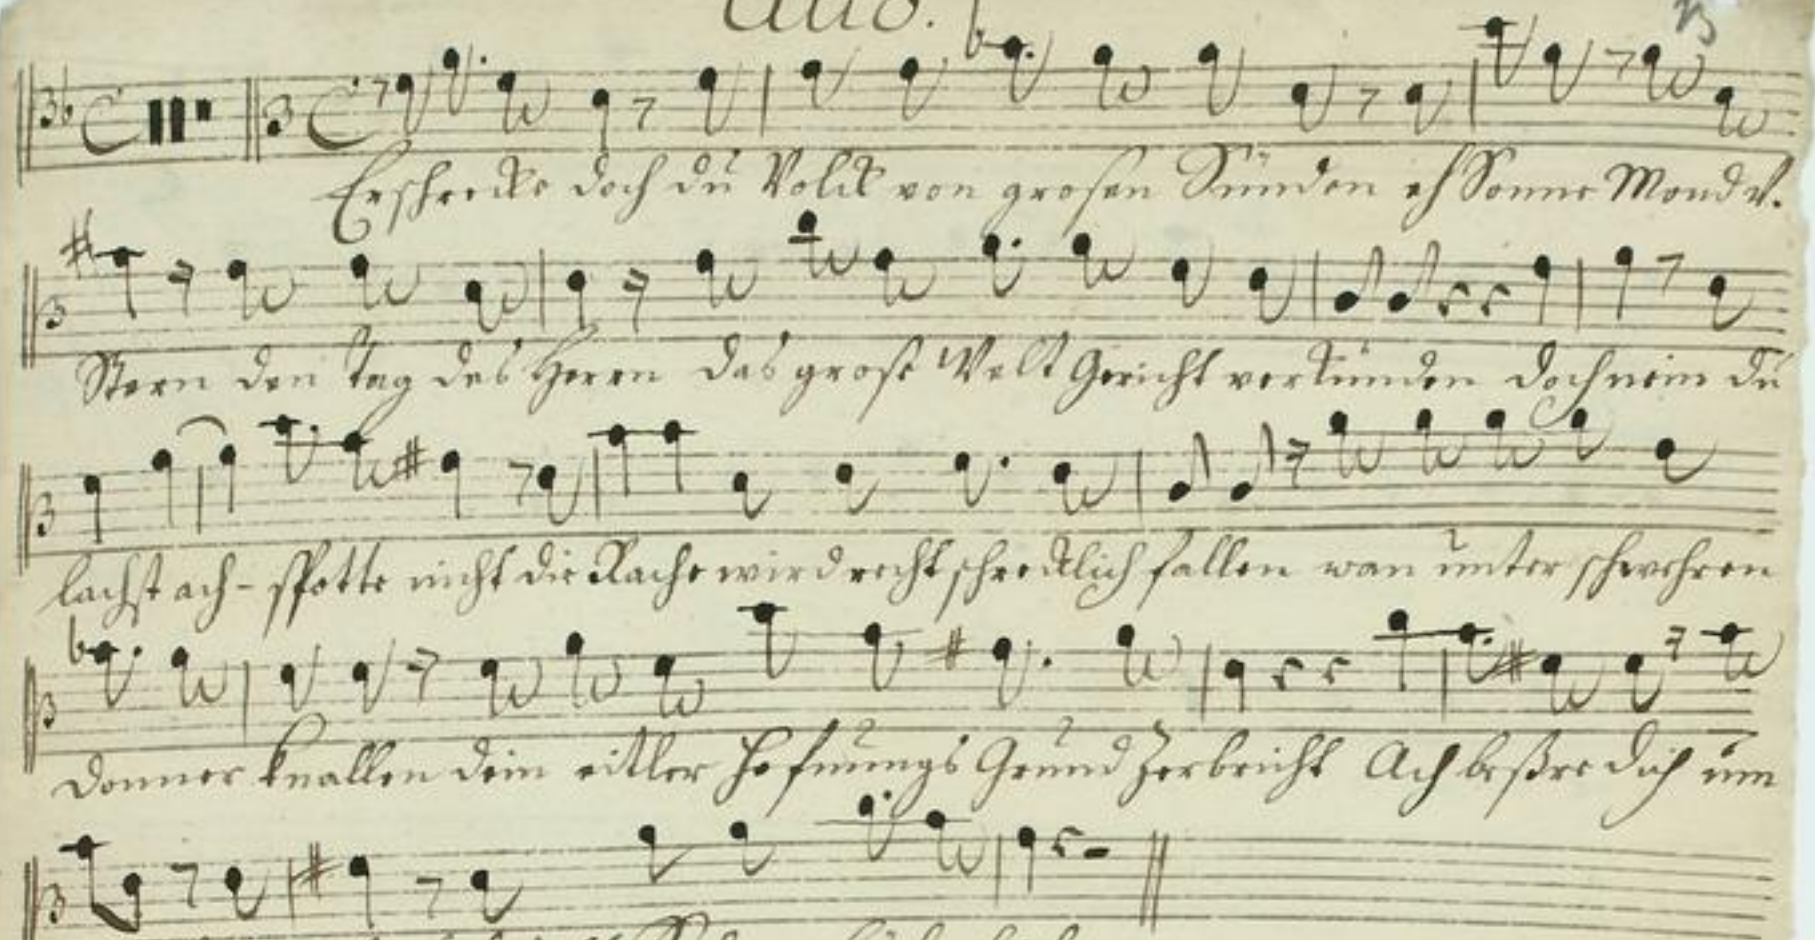 Alto.
Erschrecke doch du Volck von grosen Sünden eh Sonne Mond u.
Stern den Tag des Herrn das große Welt Gericht verkünden doch nein du
lachst ach - spotte nicht die Rache wird recht schrecklich fallen wan unter schwehren
Donner knallen dein eitler Hofnungs Grund zerbricht Ach beßre dich um